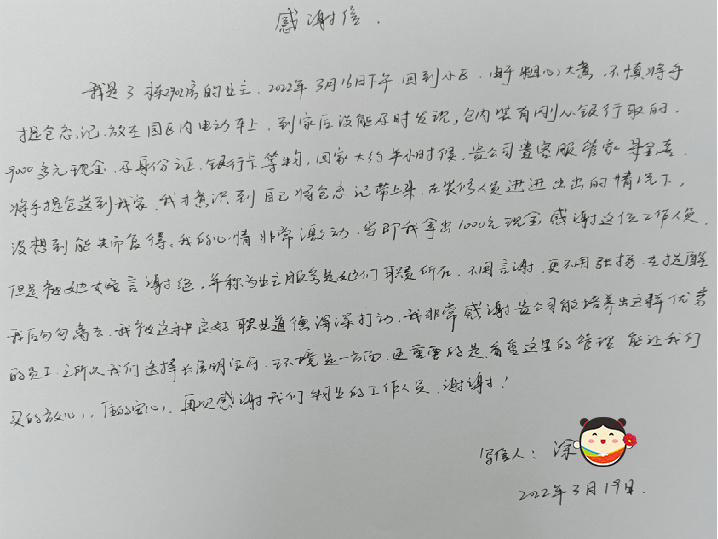 感谢信.
我是3栋2902房的业主，2022年3月16日下午回到小区，由于粗心大意，不慎将手
提包忘记放在园区内电动车上，到家后没能及时发现，包内装有刚从银行取的
9000多元现金，及身份证、银行卡等物，回家大约半小时候，贵公司客服管家
将手提包送到我家，我才意识到自己将包忘记带上来，在装修人员进进出出的情况下，
没想到能失而复得，我的心情非常激动，当即我拿出1000元现金感谢这位工作人员，
但是被她婉言谢绝，并称为业主服务是她们职责所在，不用言谢，更不用张扬，在提醒
我后匆匆离去，我被这种良好职业道德深深打动，我非常感谢贵公司能培养出这样优秀
的员工，之所以我们选择，环境是一方面，更重要的是，看重这里的管理能让我们
买的放心，住的安心，再次感谢我们物业的工作人员，谢谢！
写信人：涂
2022年3月19日.